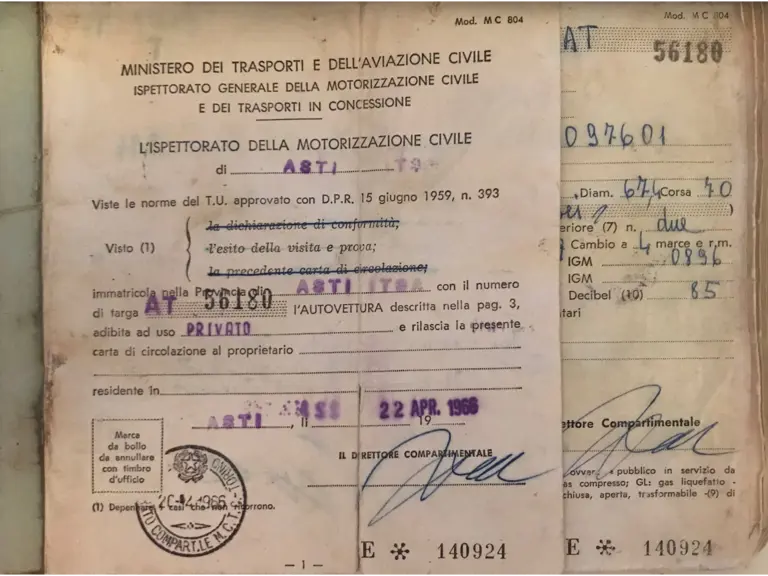 Mod. MC 804
MINISTERO DEI TRASPORTI E DELL'AVIAZIONE CIVILE
ISPETTORATO GENERALE DELLA MOTORIZZAZIONE CIVILE
E DEI TRASPORTI IN CONCESSIONE
L'ISPETTORATO DELLA MOTORIZZAZIONE CIVILE
di ASTI
Viste le norme del T.U. approvato con D.P.R. 15 giugno 1959, n. 393
la dichiarazione di conformità;
Visto (1) l'esito della visita e prova;
la precedente carta di circolazione;
immatricola nella Provincia di ASTI con il numero
di targa AT 56180 l'AUTOVETTURA descritta nella pag. 3,
adibita ad uso PRIVATO e rilascia la presente
carta di circolazione al proprietario
residente in
ASTI, li 22 APR. 1966 19
Marca
da bollo
da annullare
con timbro
d'ufficio
IL DIRETTORE COMPARTIMENTALE
(1) Depennare i casi che non ricorrono.
TORINO
COMPART.LE M.C.T.C.
— 1 —
E * 140924
Mod. MC 804
AT 56180
097601
Diam. 67,4 Corsa 70
)
eriore (7) n. due
Cambio a 4 marce e r.m.
IGM 0896
IGM
Decibel (10) 85
tari
ettore Compartimentale
ovvero pubblico in servizio da
as compresso; GL: gas liquefatto -
chiusa, aperta, trasformabile -(9) di
E * 140924